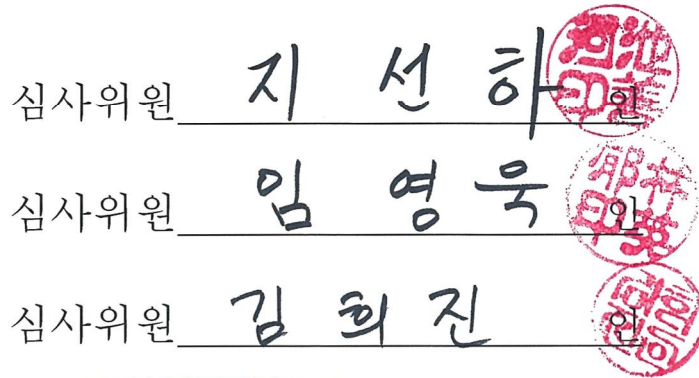 심사위원 지 선 하 인
심사위원 임 영 욱 인
심사위원 김 희 진 인